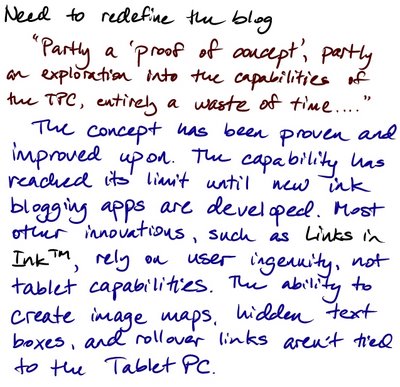 Need to redefine the blog
"Partly a 'proof of concept', partly
an exploration into the capabilities of
the TPC, entirely a waste of time...."
The concept has been proven and
improved upon. The capability has
reached its limit until new ink
blogging apps are developed. Most
other innovations, such as Links in
Ink™, rely on user ingenuity, not
tablet capabilities. The ability to
create image maps, hidden text
boxes, and rollover links aren't tied
to the Tablet PC.